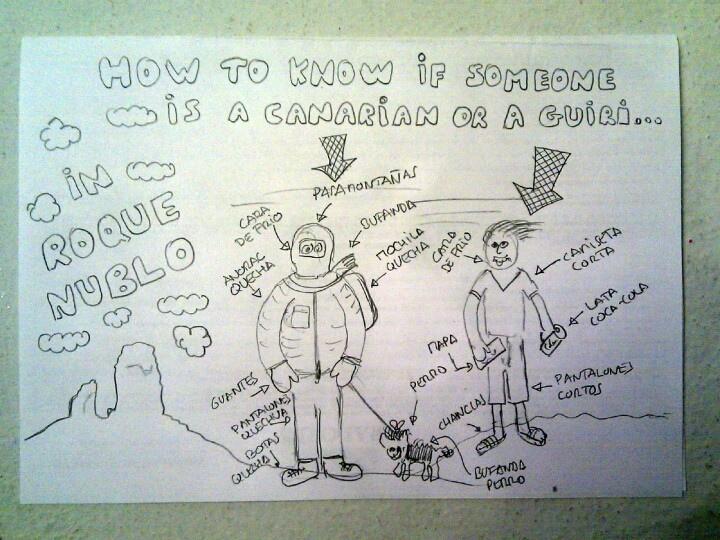 HOW TO KNOW IF SOMEONE
IS A CANARIAN OR A GUIRI...
IN
ROQUE
NUBLO
PASAMONTAÑAS
CARA
DE FRIO
BUFANDA
MOCHILA
QUECHUA
ANORAC
QUECHUA
GUANTES
PANTALONES
QUECHUA
BOTAS
QUECHUA
PERRO
BUFANDA
PERRO
CARA
DE FRIO
CAMISETA
CORTA
LATA
COCA-COLA
MAPA
PANTALONES
CORTOS
CHANCLAS